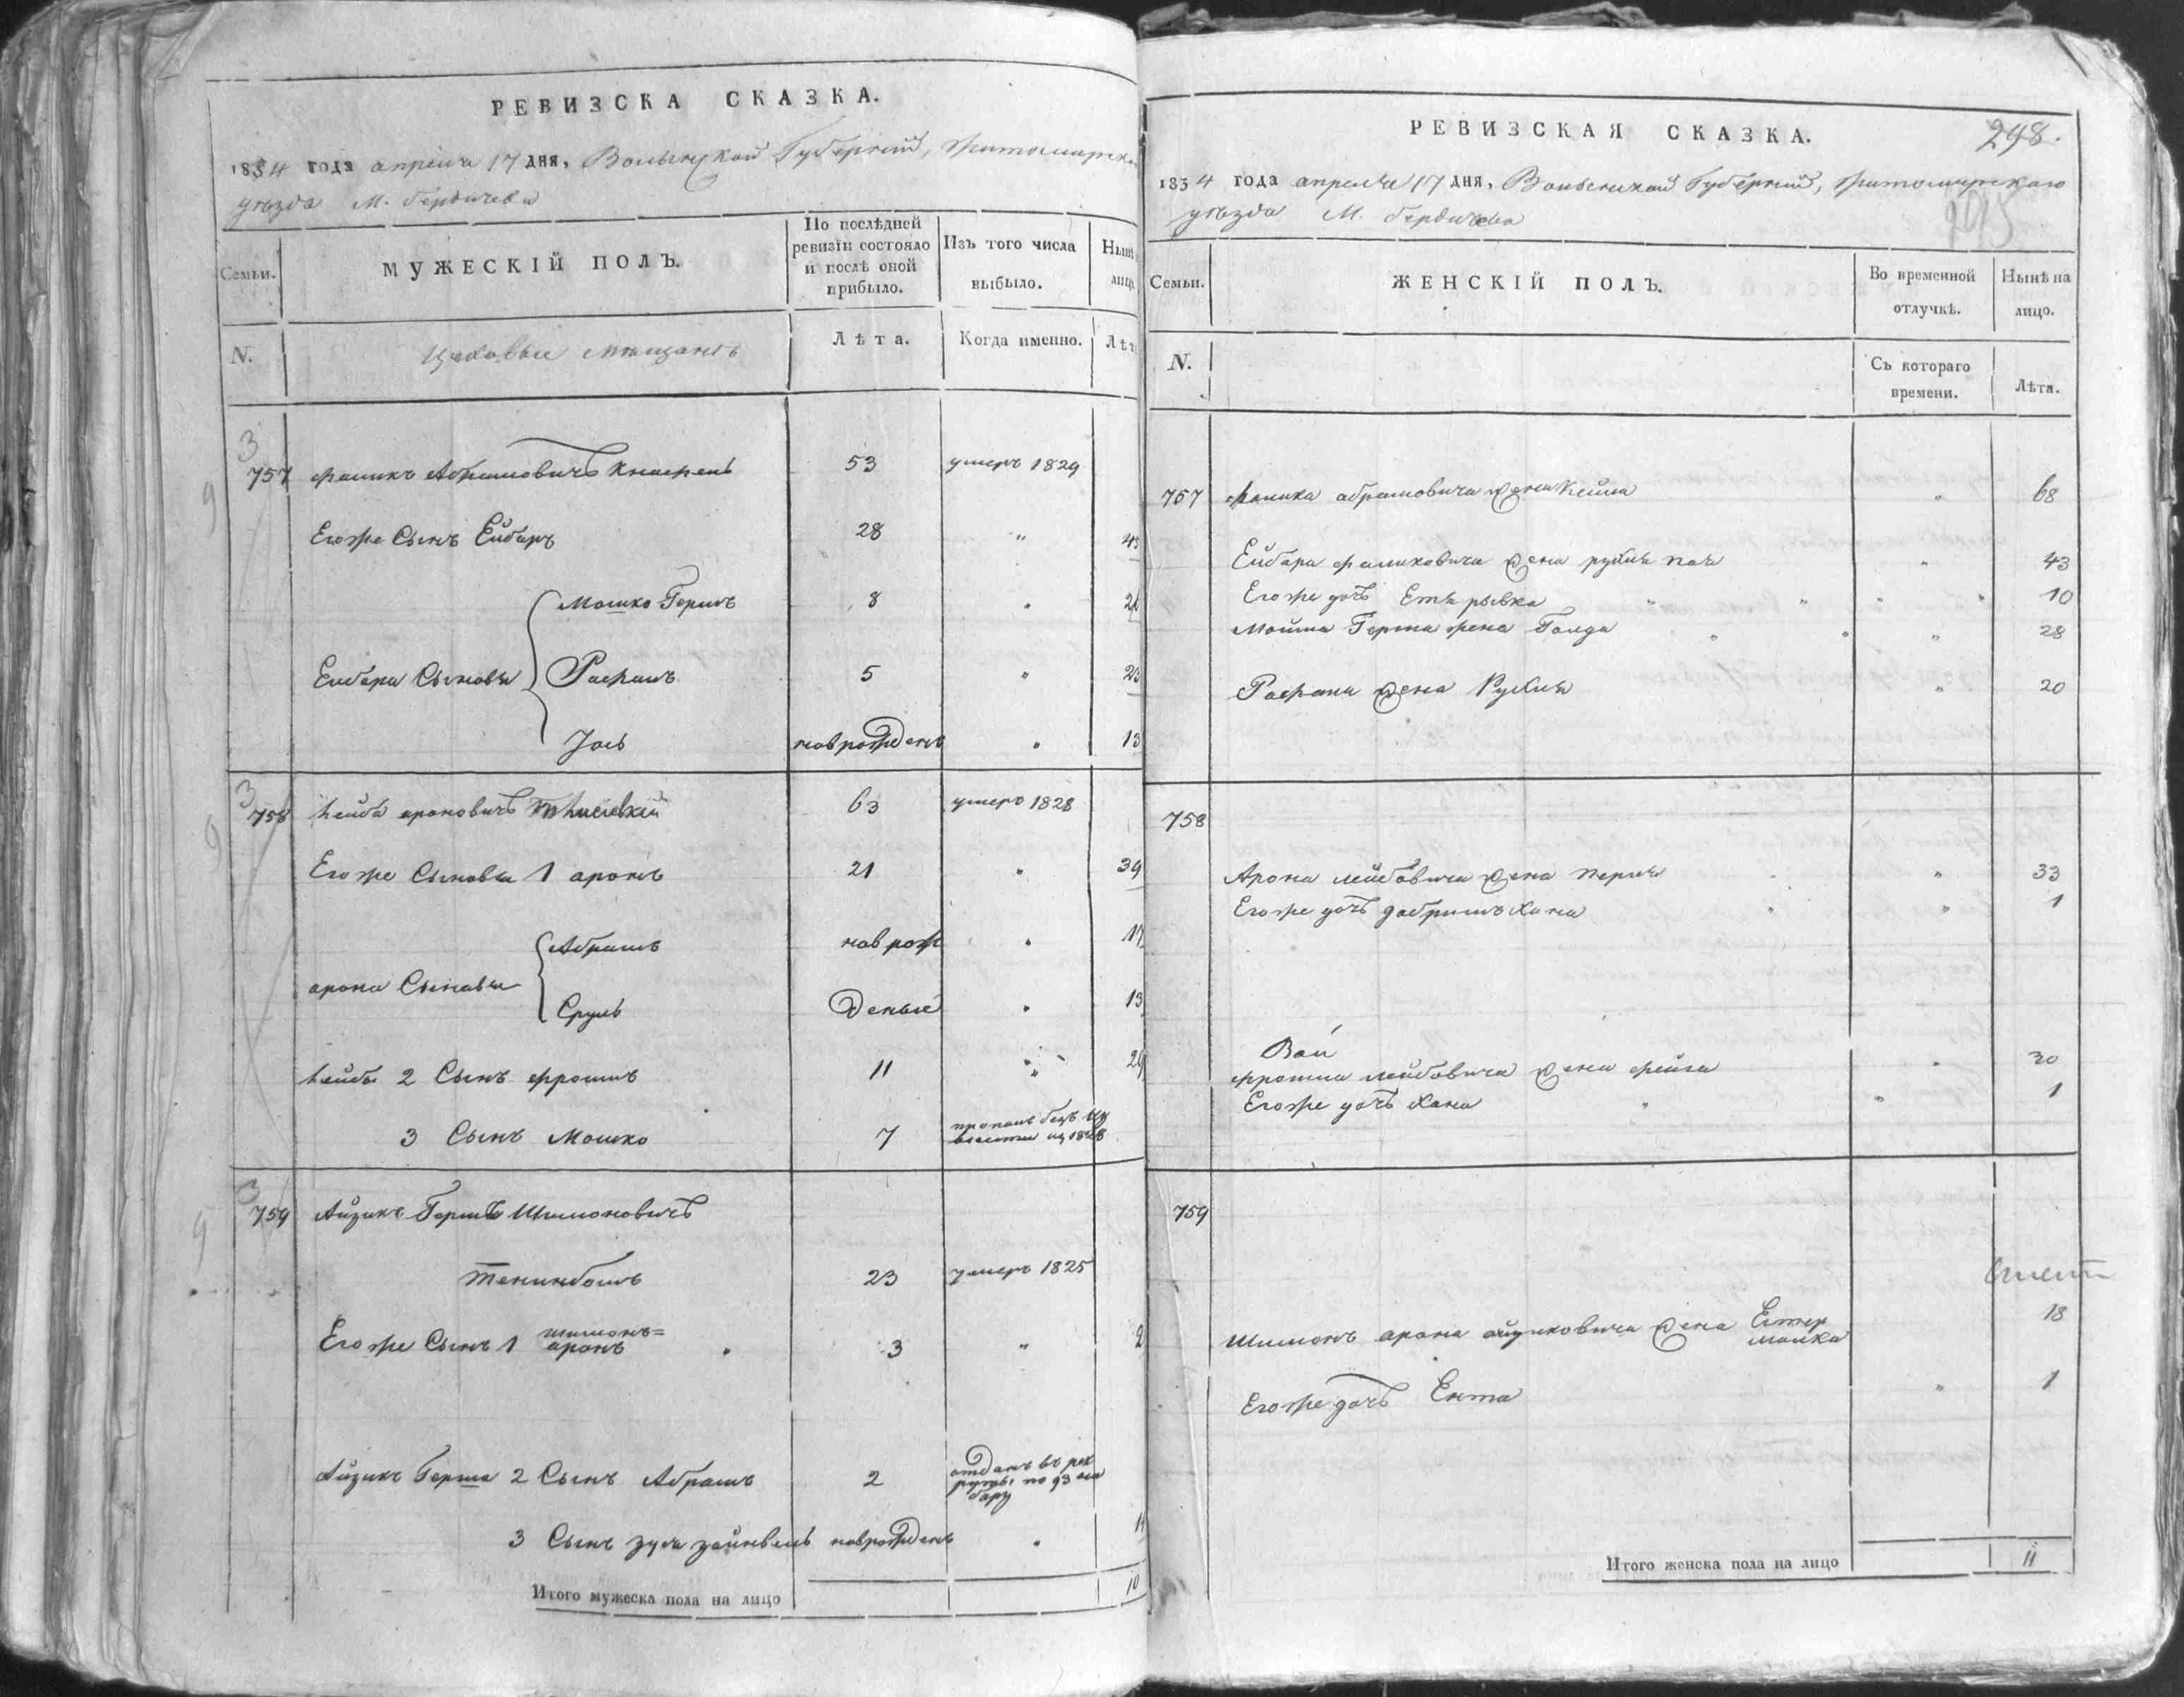 РЕВИЗСКА СКАЗКА.
1834 года апреля 17 дня, Волынской Губернии, Житомирска
уезда М. Бердичева
Семьи. МУЖЕСКІЙ ПОЛЪ. По послѣдней ревизіи состояло и послѣ оной прибыло. Изъ того числа выбыло. Нынѣ лицо
N. Цеховые мещанѣ Лѣта. Когда именно. Лѣт
757 Фаликъ Абрамовичъ 53 умеръ 1829
Егоже Сынъ Ейбаръ 28 „ 43
Мошко Гершъ 8 „
Ейбара Сыновья Рафаилъ 5 „ 23
Іось новрожденъ „ 13
758 Лейба Ароновичъ 63 умеръ 1828
Егоже Сыновья 1 Аронъ 21 „ 39
Абрамъ новрож „ 17
Арона Сыновья
Сруль Деные „ 13
Лейбы 2 Сынъ Фроимъ 11 „ 29
3 Сынъ Мошко 7 пропалъ безъ из
вести
759 Айзикъ Гершъ Шимоновичъ
Тененбомъ 23 умеръ 1825
Егоже Сынъ 1 Шимонъ=
Аронъ 3 „ 2
Айзикъ Герша 2 Сынъ Абрамъ 2 отданъ въ рек
руты по
3 Сынъ Зуся Зайнвель новрожденъ „ 1
Итого мужеска пола на лицо 10
РЕВИЗСКАЯ СКАЗКА. 248.
1834 года апреля 17 дня, Волынской Губернии, Житомирскаго
уезда М. Бердичева
295
Семьи. ЖЕНСКІЙ ПОЛЪ. Во временной отлучкѣ. Нынѣ на лицо.
N. Съ котораго времени. Лѣта.
757 Фалика Абрамовича жена Кейла „ 68
Ейбара Фаликовича жена Рухля „ 43
Егоже дочь Етя Рывка „ 10
Мошка Герша жена Голда „ 28
Рафаила жена Рухля „ 20
758
Арона Лейбовича жена Перля „ 33
Егоже дочь Добришъ Хана „ 1
Фроима Лейбовича жена Фейга „ 30
Егоже дочь Хана „ 1
759
Шимонъ Арона Айзиковича жена Естер
Малка 18
Егоже дочь Ента „ 1
Итого женска пола на лицо 11